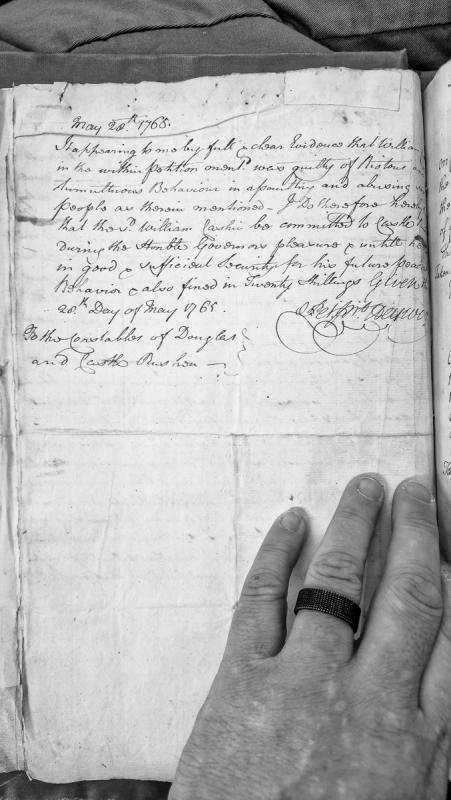 May 28th 1765.
It appearing to me by full & clear Evidence that William
in the within Petition ment.d was guilty of Riotous
tumultuous Behaviour in assaulting and abusing
people as therein mentioned – I Do therefore hereby
that the s.d William Cashin be committed to Castle
during the Honble Governors pleasure & untill he
in good & sufficient Security for his future peac
Behavior & also fined in Twenty Shillings Given
28th Day of May 1765.
To the Constables of Douglas
and Castle Rushen –